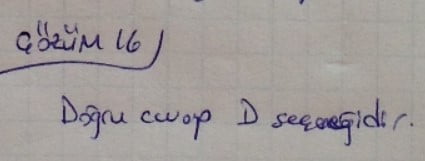 ÇÖZÜM 16)
Doğru cevap D seçeneğidir.